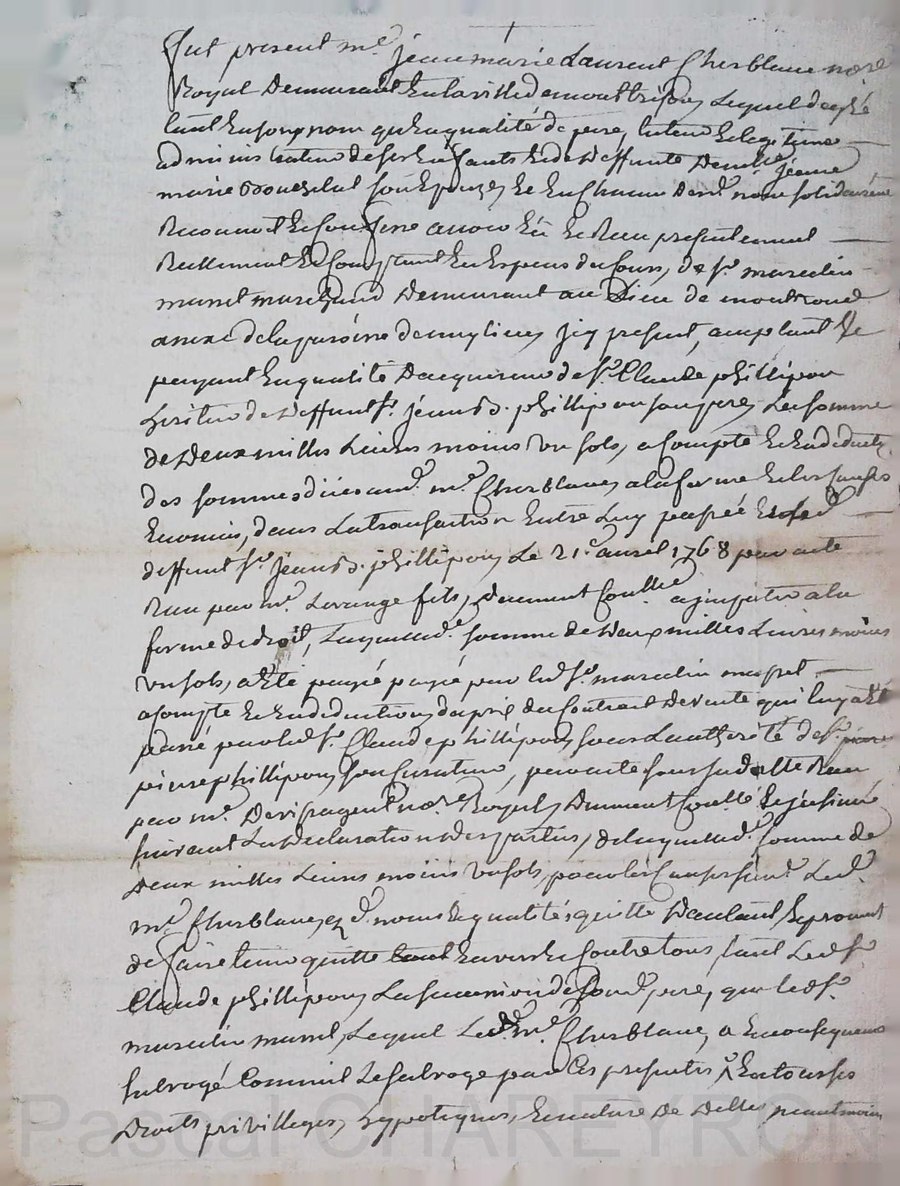 fut present me jean marie Laurent Cherblanc nore
Royal Demeurant En la ville de montbrison, Lequel de gré
tant En son nom qu'En qualité de pere, tuteur Et legitime
administrateur de ses Enfants Et de deffunte Demelle jeanne
marie son Epouze, Et En Chacun desd. noms solidairement
Reconnoit Et Confesse avoir Eû Et Reçu presentement
Reellement Et Comptant En Especes du Cours, de sr. marcelin
marchand Demeurant au Lieu de montrond
annexe de la paroisse de meylieu, icy present, acceptant Et
payant En qualité D'acquereur de sr. Claude phillipon
heritier de deffunt sr. jean Bt. phillipon son pere, La somme
de Deux milles Livres moins un sols, a Compte Et En deduction
des sommes düees aud. me. Cherblanc, a la forme Et les Causes
Enoncés, dans La transaction Entre Luy passée Et led.
deffunt sr. jean Bt. phillipon Le 21e. avril 1768 par acte
Reçu par me. Lavange fils, düement Controllé
forme de droit, Laquelled. somme de deux milles Livres moins
un sols, a Eté payée payée par led. sr. marcelin
a compte Et En deduction du prix du Contrat De vente qui luy a Eté
passé par led. sr. Claude phillipon sous L'authorité de sr. pierre
pierre phillipon son Curateur, par acte sous sa datte Reçu
par me. nore Royal, Dument Controllé Et insinué
suivant La Declaration Des parties, de laquelled. somme de
Deux milles Livres moins un sols, Led.
me. Cherblanc, Esd. noms Et qualités quitte D'autant Et promet
de faire tenir quitte Envers Et Contre tous, tant Led. sr.
Claude phillipon La de sond. pere, que led. sr.
marcelin Lequel Led. me. Cherblanc, a En Consequence
subrogé Comme il Le subroge par Ces presentes En tous ses
Droits privilleges, hypoteques, Et nature De Dettes neantmoins
Pascal CHAREYRON